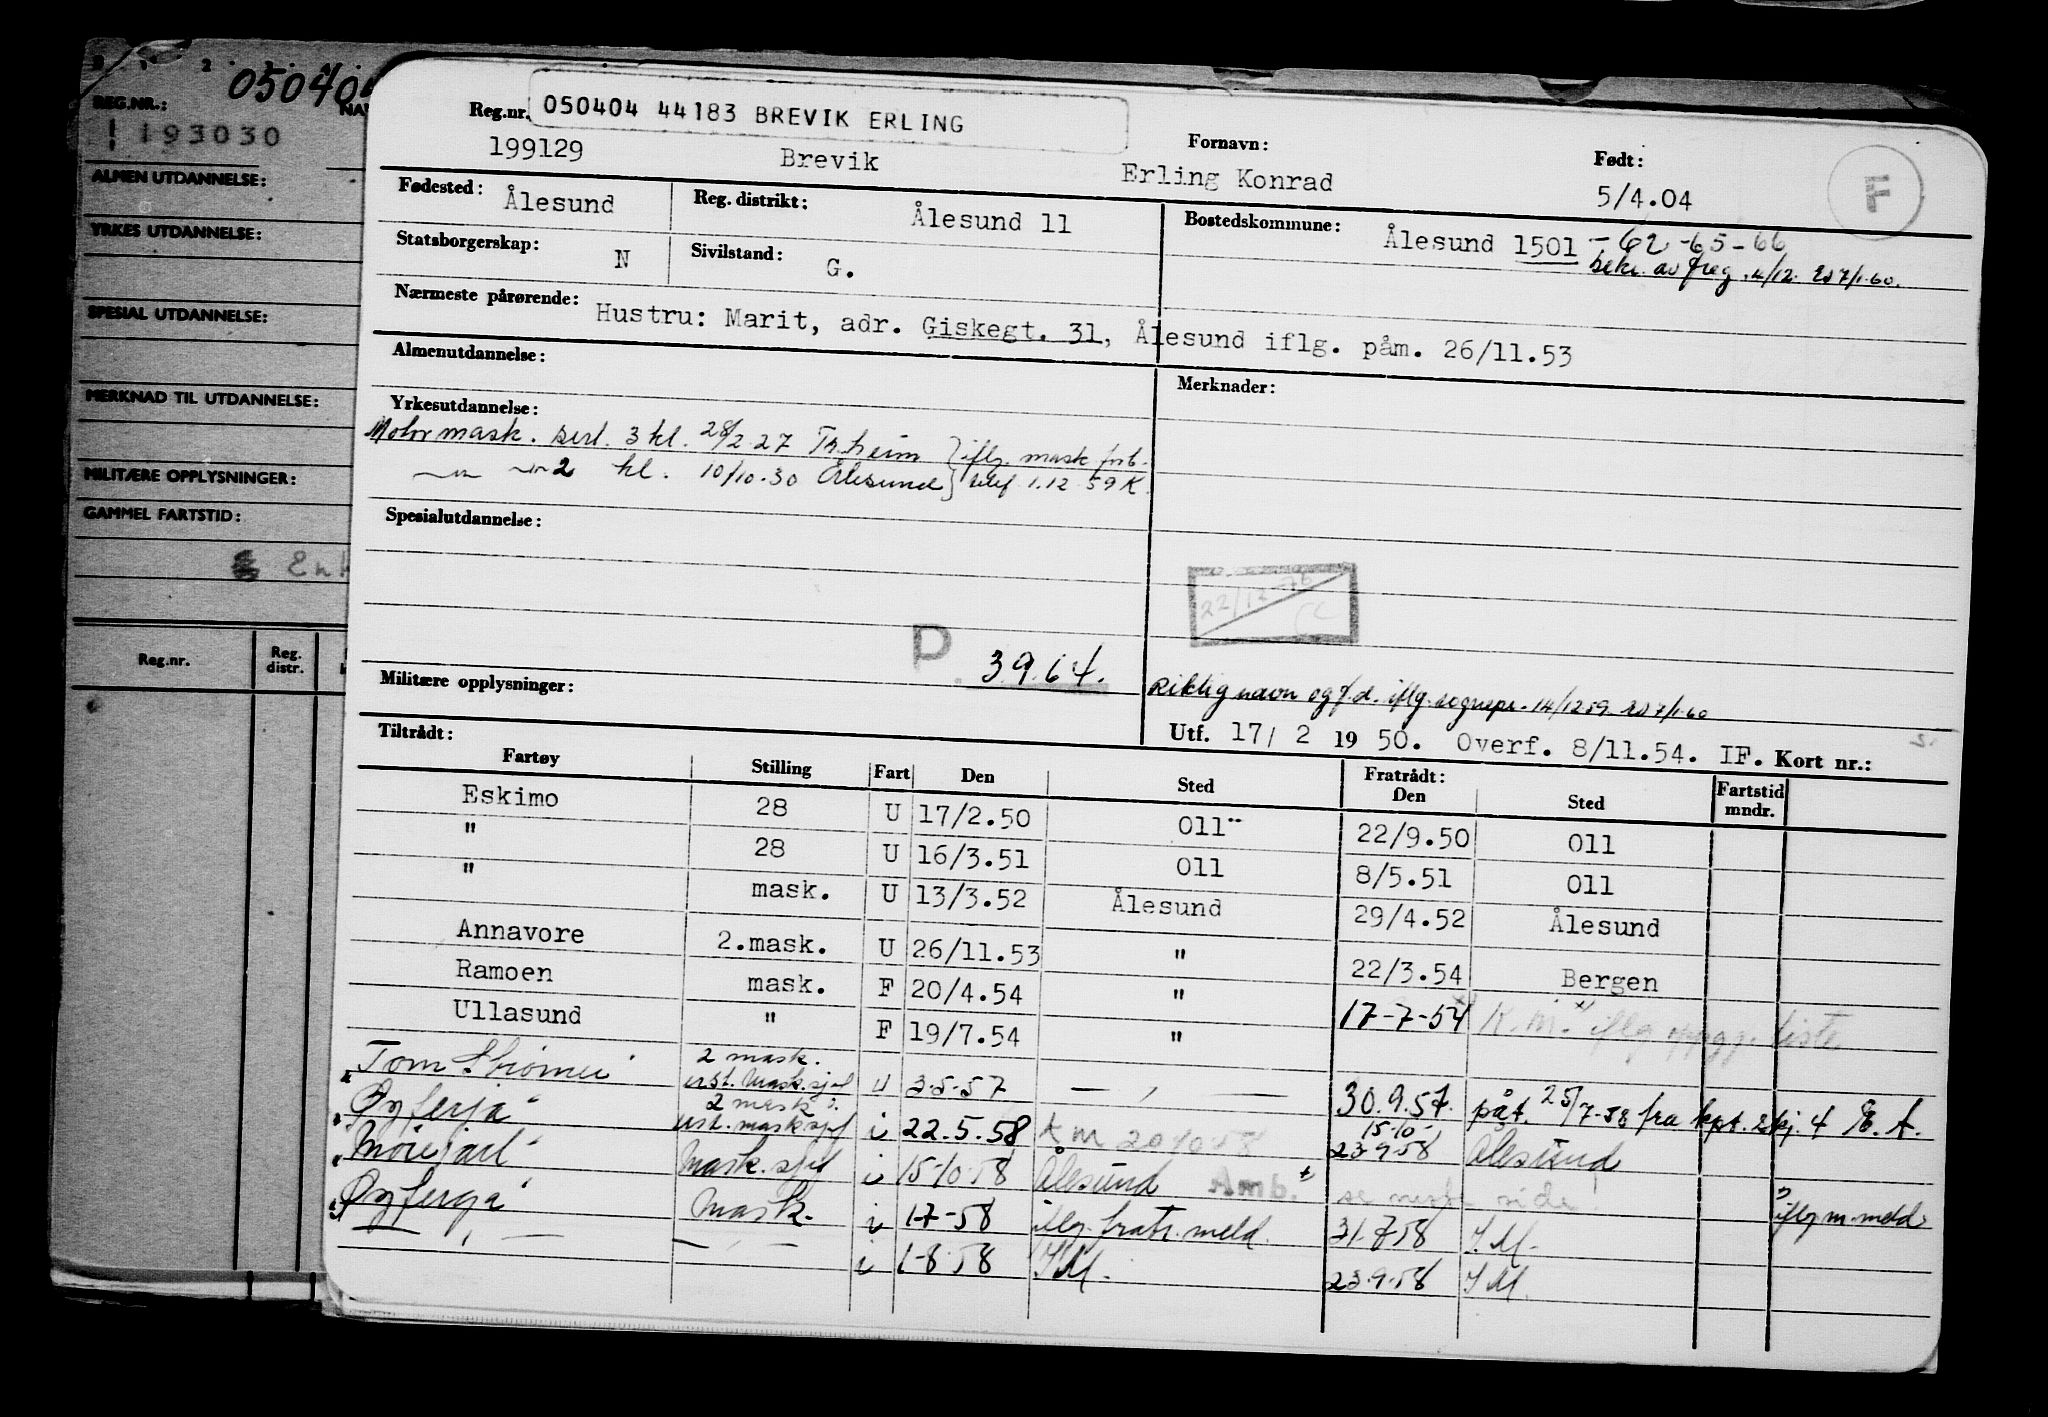 050404
REG.NR.:
NA
193030
ALMEN UTDANNELSE:
YRKES UTDANNELSE:
SPESIAL UTDANNELSE:
MERKNAD TIL UTDANNELSE:
MILITÆRE OPPLYSNINGER:
GAMMEL FARTSTID:
Reg.nr. Reg. distr.
Reg.nr. 050404 44183 BREVIK ERLING Fornavn: Født:
199129 Brevik Erling Konrad 5/4.04 F
Fødested: Ålesund Reg. distrikt: Ålesund 11 Bostedskommune: Ålesund 1501 -62-65-66
bekr. av freg. 4/12. 7/1-60.
Statsborgerskap: N Sivilstand: G.
Nærmeste pårørende: Hustru: Marit, adr. Giskegt. 31, Ålesund iflg. påm. 26/11.53
Almenutdannelse: Merknader:
Yrkesutdannelse:
Motormask. sert. 3 kl. 28/2 27 Tr.heim } iflg. mask. forb.
2 kl. 10/10.30 Ålesund } 1.12 59 K.
Spesialutdannelse:
22/12-76
P 3964.
Militære opplysninger: Riktig navn og f.d. iflg. sognepr. 14/12 59. 7/1-60
Utf. 17/ 2 1950. Overf. 8/11.54. IF. Kort nr.:
Tiltrådt: Fratrådt:
Fartøy Stilling Fart Den Sted Den Sted Fartstid mndr.
Eskimo 28 U 17/2.50 Oll 22/9.50 Oll
" 28 U 16/3.51 Oll 8/5.51 Oll
" mask. U 13/3.52 Ålesund 29/4.52 Ålesund
Annavore 2.mask. U 26/11.53 " 22/3.54 Bergen
Ramoen mask. F 20/4.54 " 17-7-54 K.M. x) iflg oppg. liste
Ullasund " F 19/7.54 "
Tom Strømer 2 mask. urst. mask.sjef U 3-5-57 — " — 30.9.57. påt. 25/7-58 fra kpt.
"Øyferja" 2 mask. urst. mask.sjef i 22.5.58 KM 15-10- 23-9-58 Ålesund
"Mørejarl" Mask. sjef i 15-10-58 Ålesund Amb. se neste side! iflg m. meld
"Øyferja" Mask. i 1-7-58 iflg. fratr. meld. 31-7-58 I.M.
— " — — " — i 1-8-58 I.M. 23-9-58 I.M.